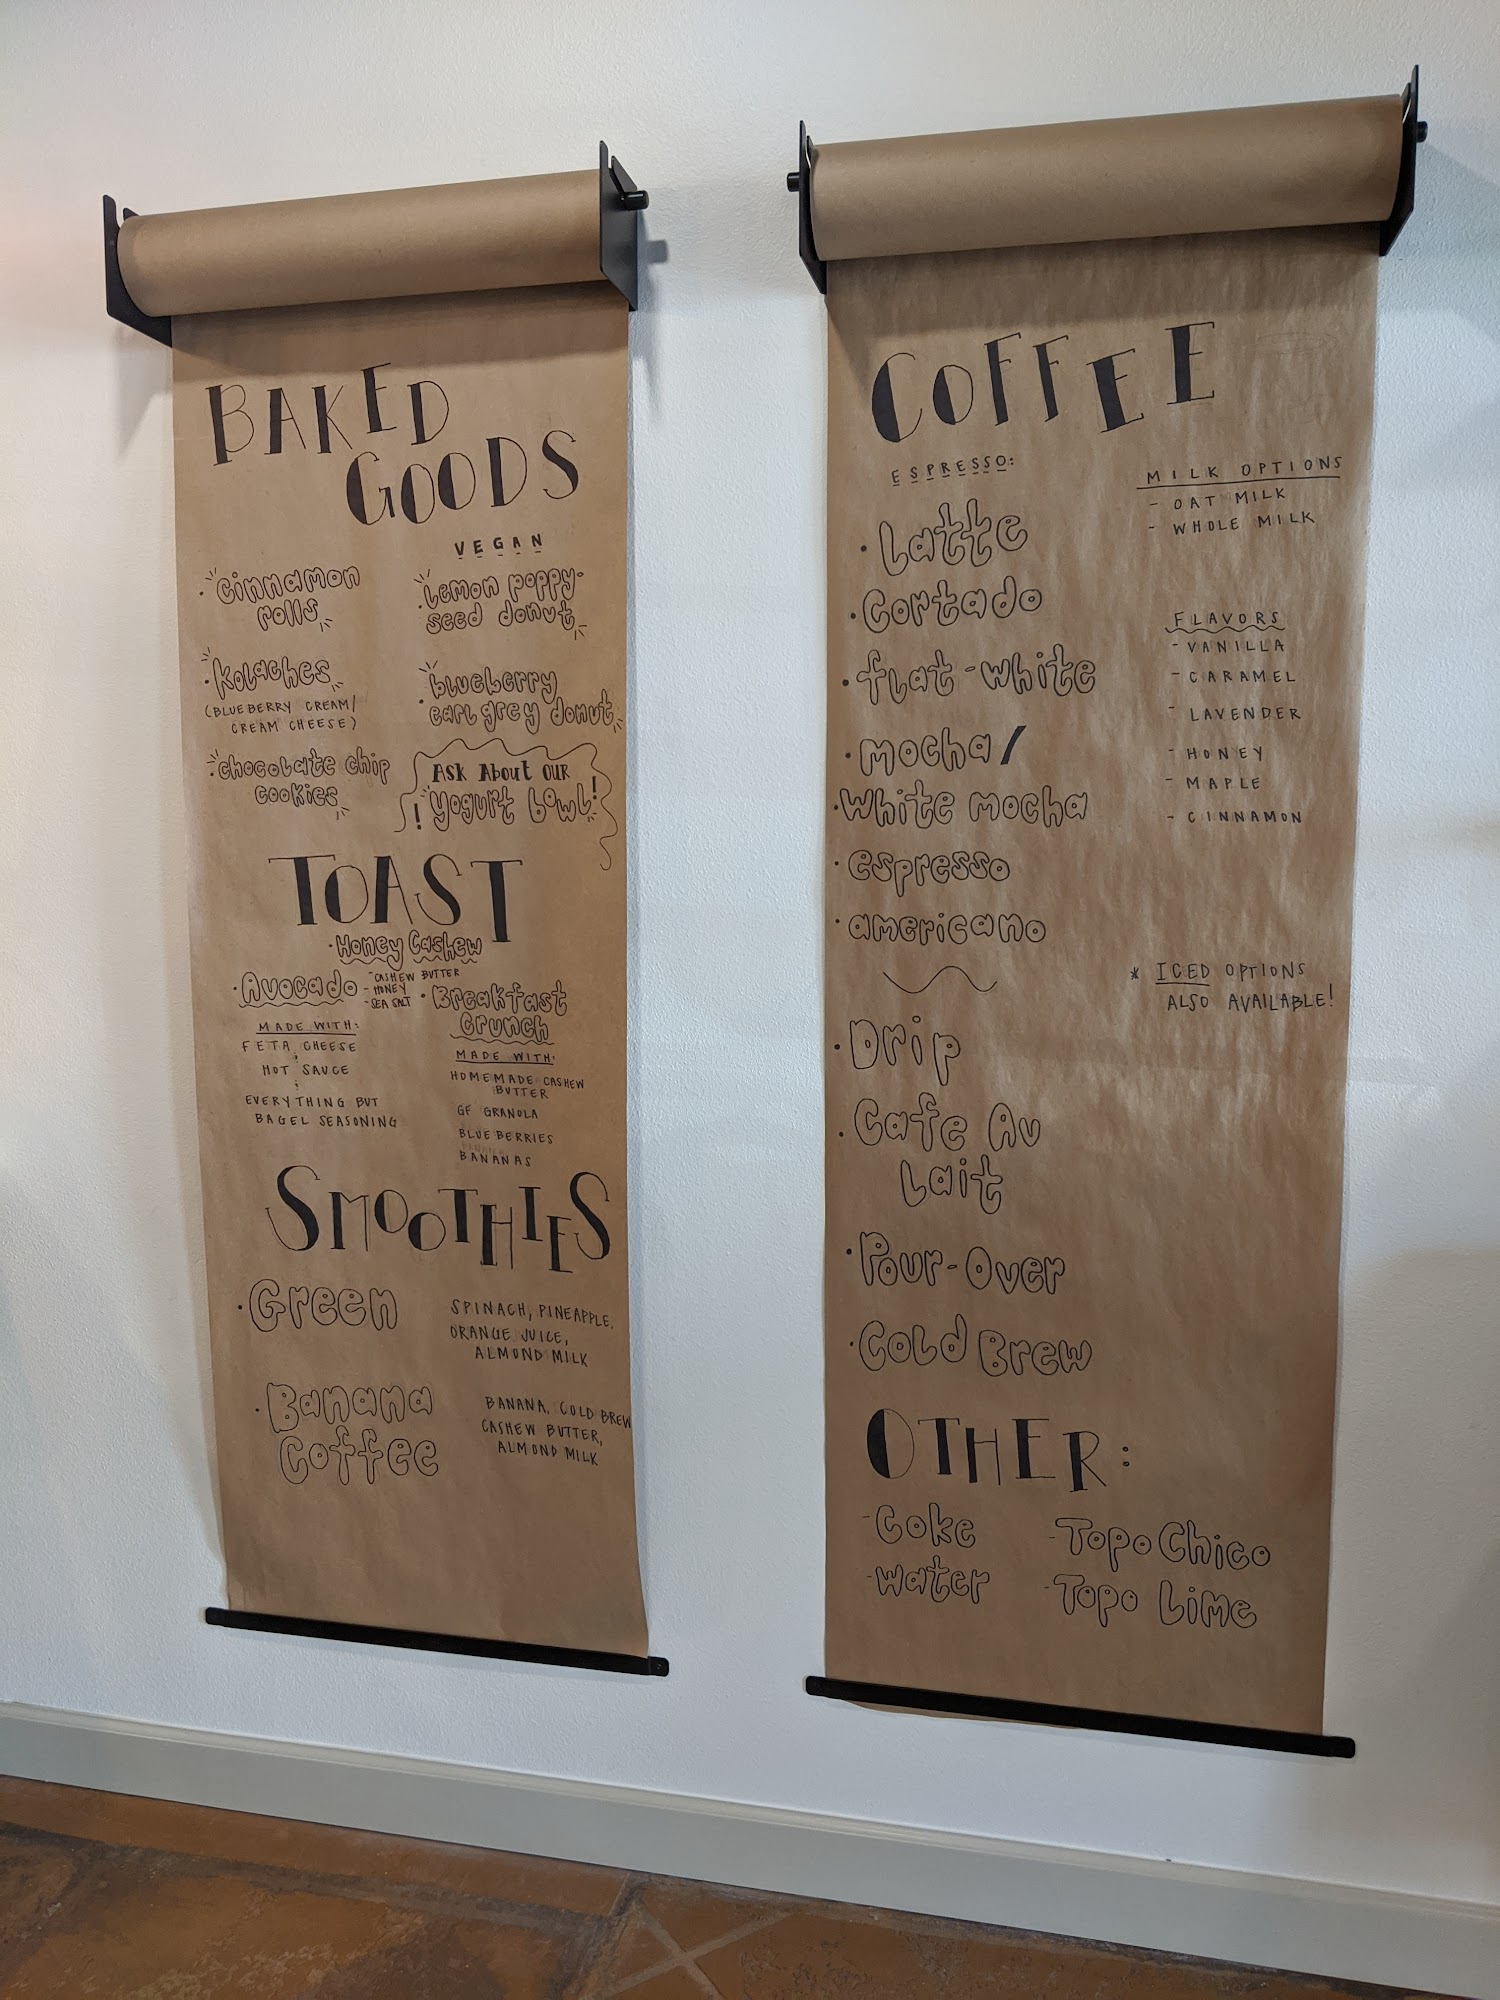 BAKED
GOODS
VEGAN
• cinnamon
rolls
• kolaches
(BLUEBERRY CREAM/
CREAM CHEESE)
• chocolate chip
cookies
• Lemon poppy-
seed donut
• blueberry
earl grey donut
Ask About OUR
! yogurt bowl!
TOAST
• Honey Cashew
- CASHEW BUTTER
- HONEY
- SEA SALT
• Avocado
MADE WITH:
FETA CHEESE
HOT SAUCE
EVERYTHING BUT
BAGEL SEASONING
• Breakfast
Crunch
MADE WITH:
HOMEMADE CASHEW
BUTTER
GF GRANOLA
BLUEBERRIES
BANANAS
SMOOTHIES
• Green
SPINACH, PINEAPPLE,
ORANGE JUICE,
ALMOND MILK
• Banana
Coffee
BANANA, COLD BREW
CASHEW BUTTER,
ALMOND MILK
COFFEE
ESPRESSO:
• Latte
• Cortado
• flat-white
• mocha/
• white mocha
• espresso
• americano
• Drip
• Cafe Au
Lait
• Pour-Over
• Cold Brew
MILK OPTIONS
- OAT MILK
- WHOLE MILK
FLAVORS
- VANILLA
- CARAMEL
- LAVENDER
- HONEY
- MAPLE
- CINNAMON
* ICED OPTIONS
ALSO AVAILABLE!
OTHER:
- Coke
- water
- Topo Chico
- Topo Lime